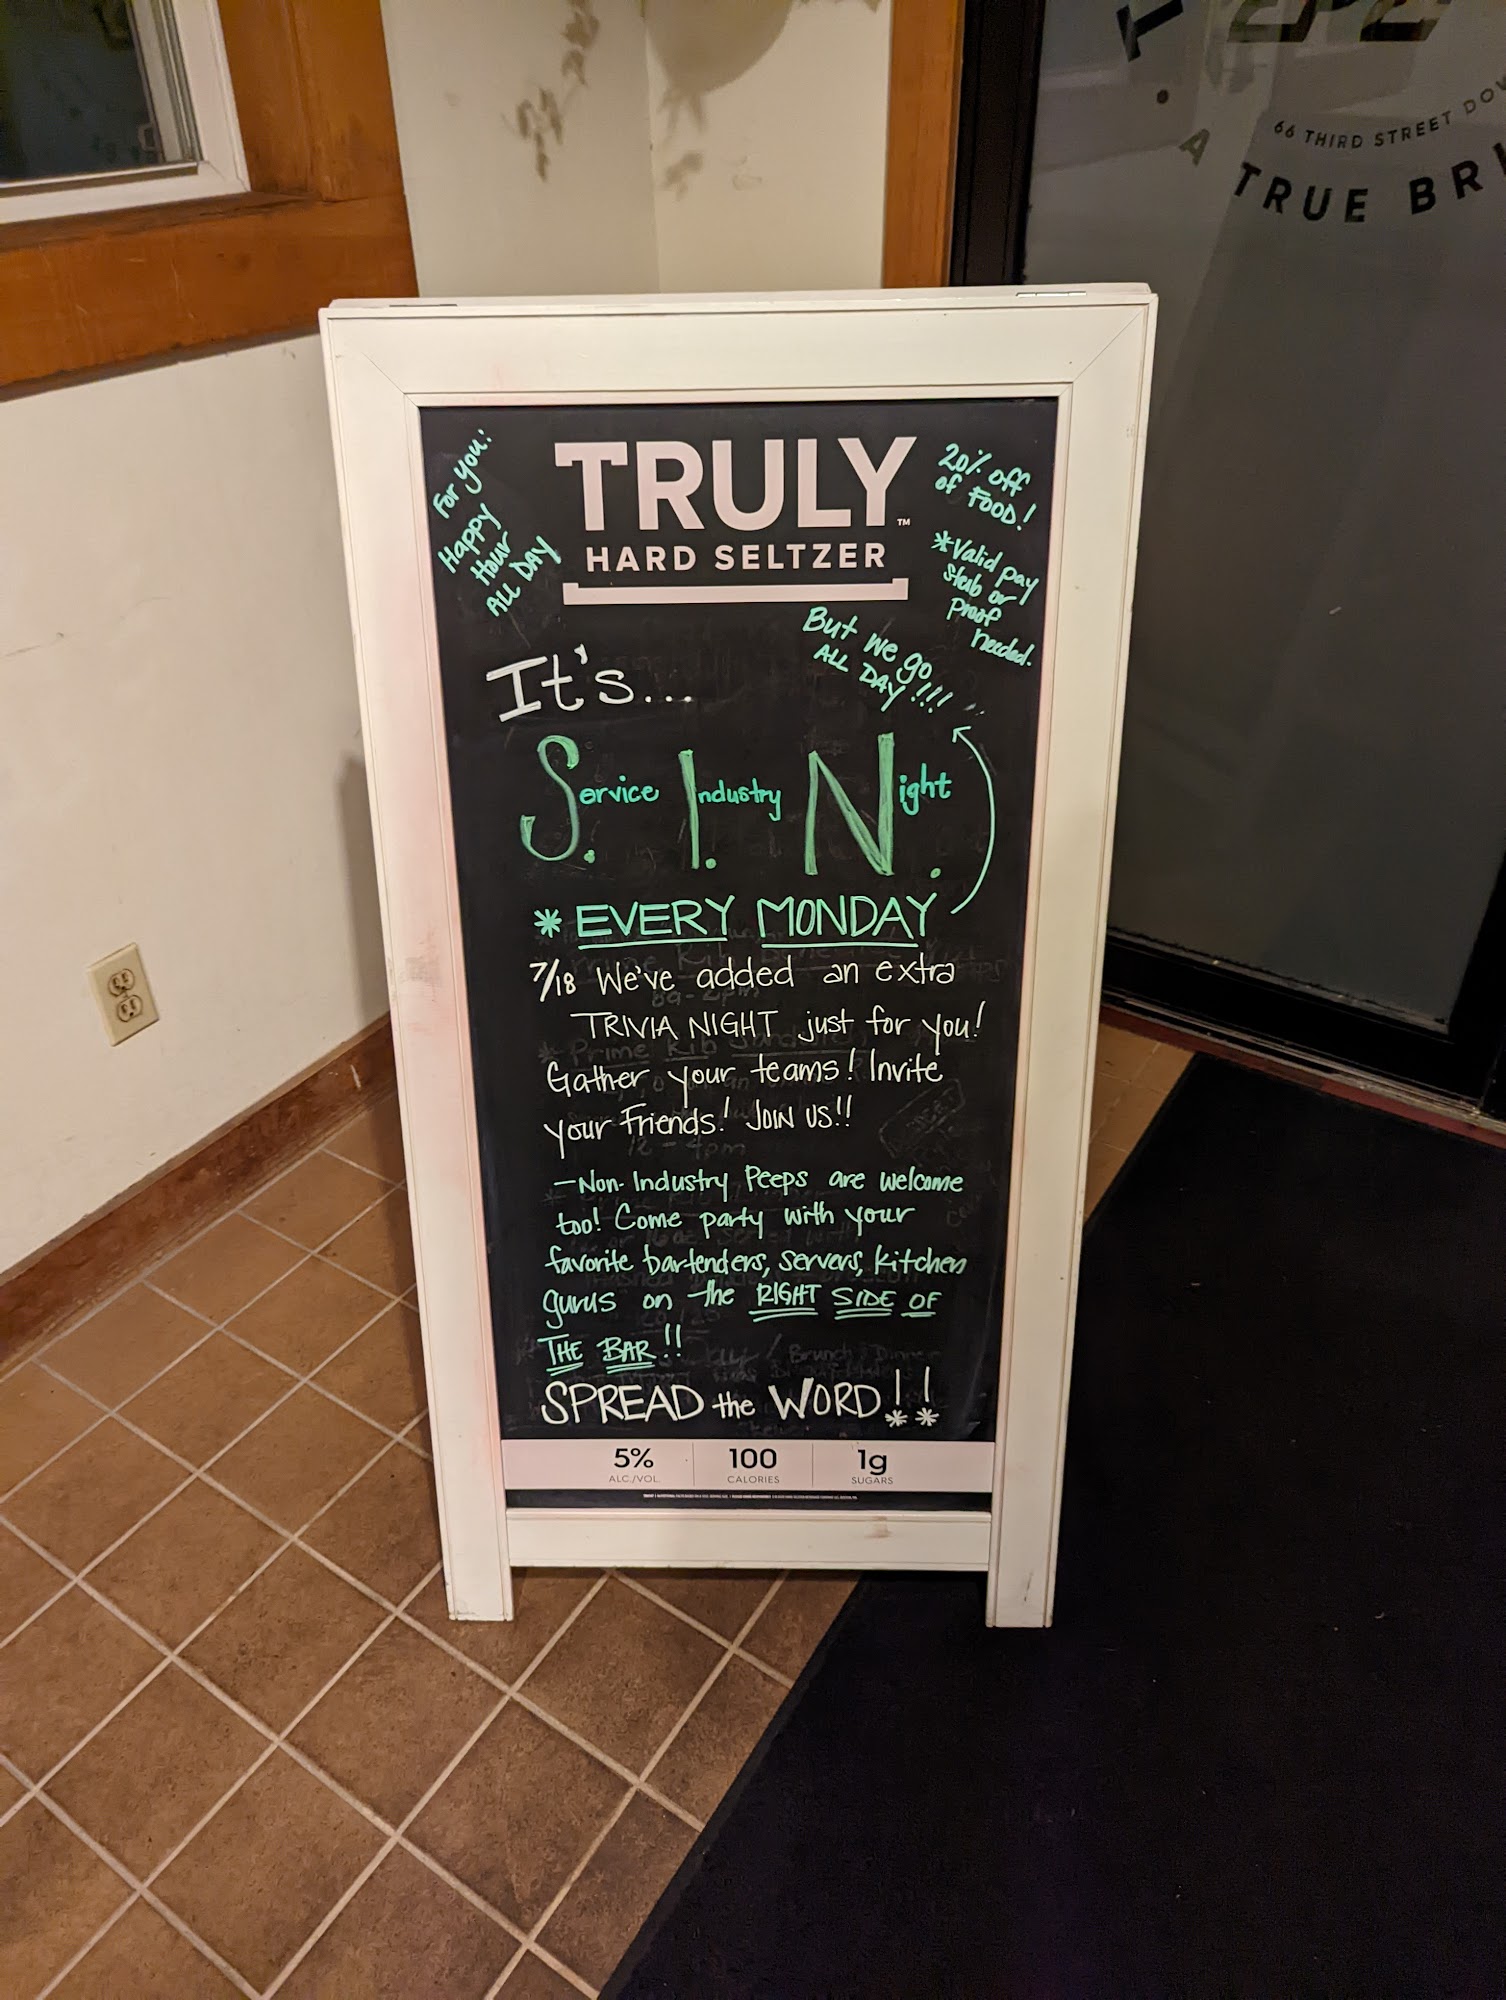 T.
66 THIRD STREET
A TRUE
For you:
Happy
Hour
ALL DAY
TRULY™
HARD SELTZER
20% off
of FOOD!
*Valid pay
stub or
proof
needed.
But we go
ALL DAY!!!
It's...
Service Industry Night.
S. I. N.
* EVERY MONDAY
7/18 We've added an extra
TRIVIA NIGHT just for you!
Gather your teams! Invite
your Friends! JOIN US!!
-Non-Industry Peeps are welcome
too! Come party with your
favorite bartenders, servers, kitchen
gurus on the RIGHT SIDE OF
THE BAR!!
SPREAD the WORD!!
5% 100 1g
ALC./VOL. CALORIES SUGARS